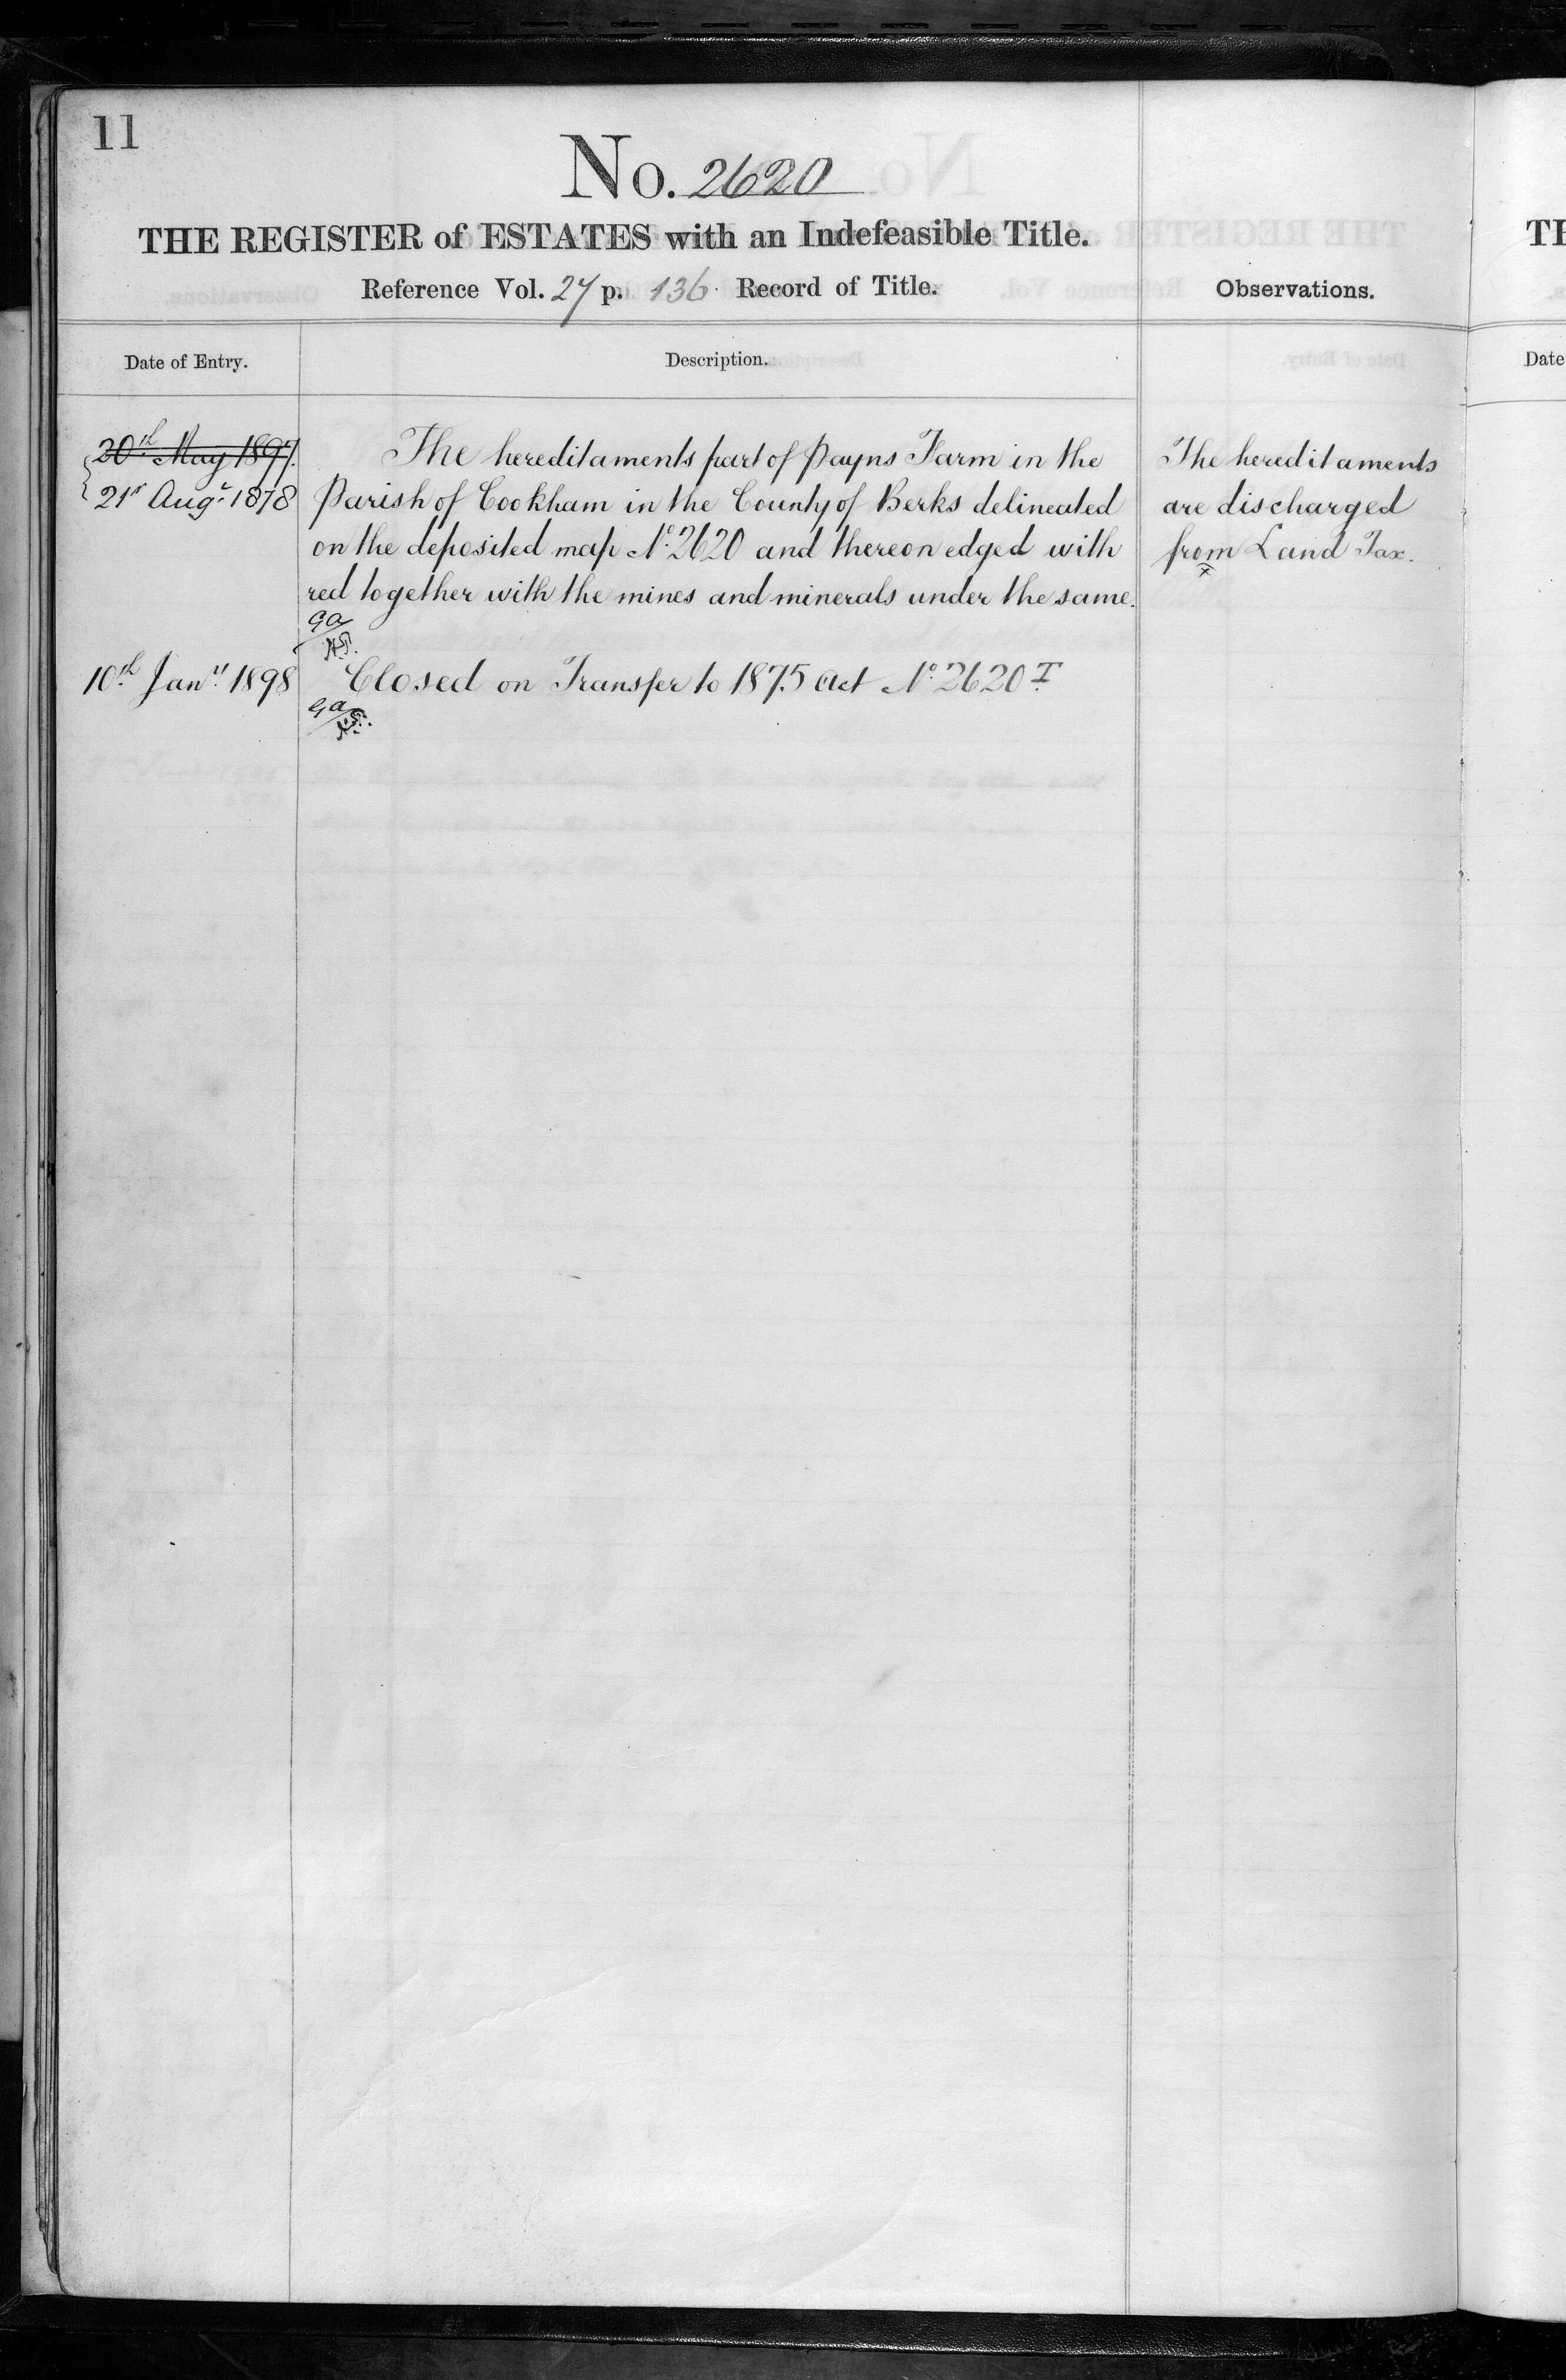 11
No. 2620
THE REGISTER of ESTATES with an Indefeasible Title.
Reference Vol. 27 p. 136 Record of Title.
Observations.
Date of Entry.
Description.
20th May 1897.
21st Augt 1878
The hereditaments part of Payns Farm in the
Parish of Cookham in the County of Berks delineated
on the deposited map No. 2620 and thereon edged with
red together with the mines and minerals under the same.
The hereditaments
are discharged
from Land Tax.
10th Jany 1898
Closed on Transfer to 1875 Act No. 2620 T
TH
Date